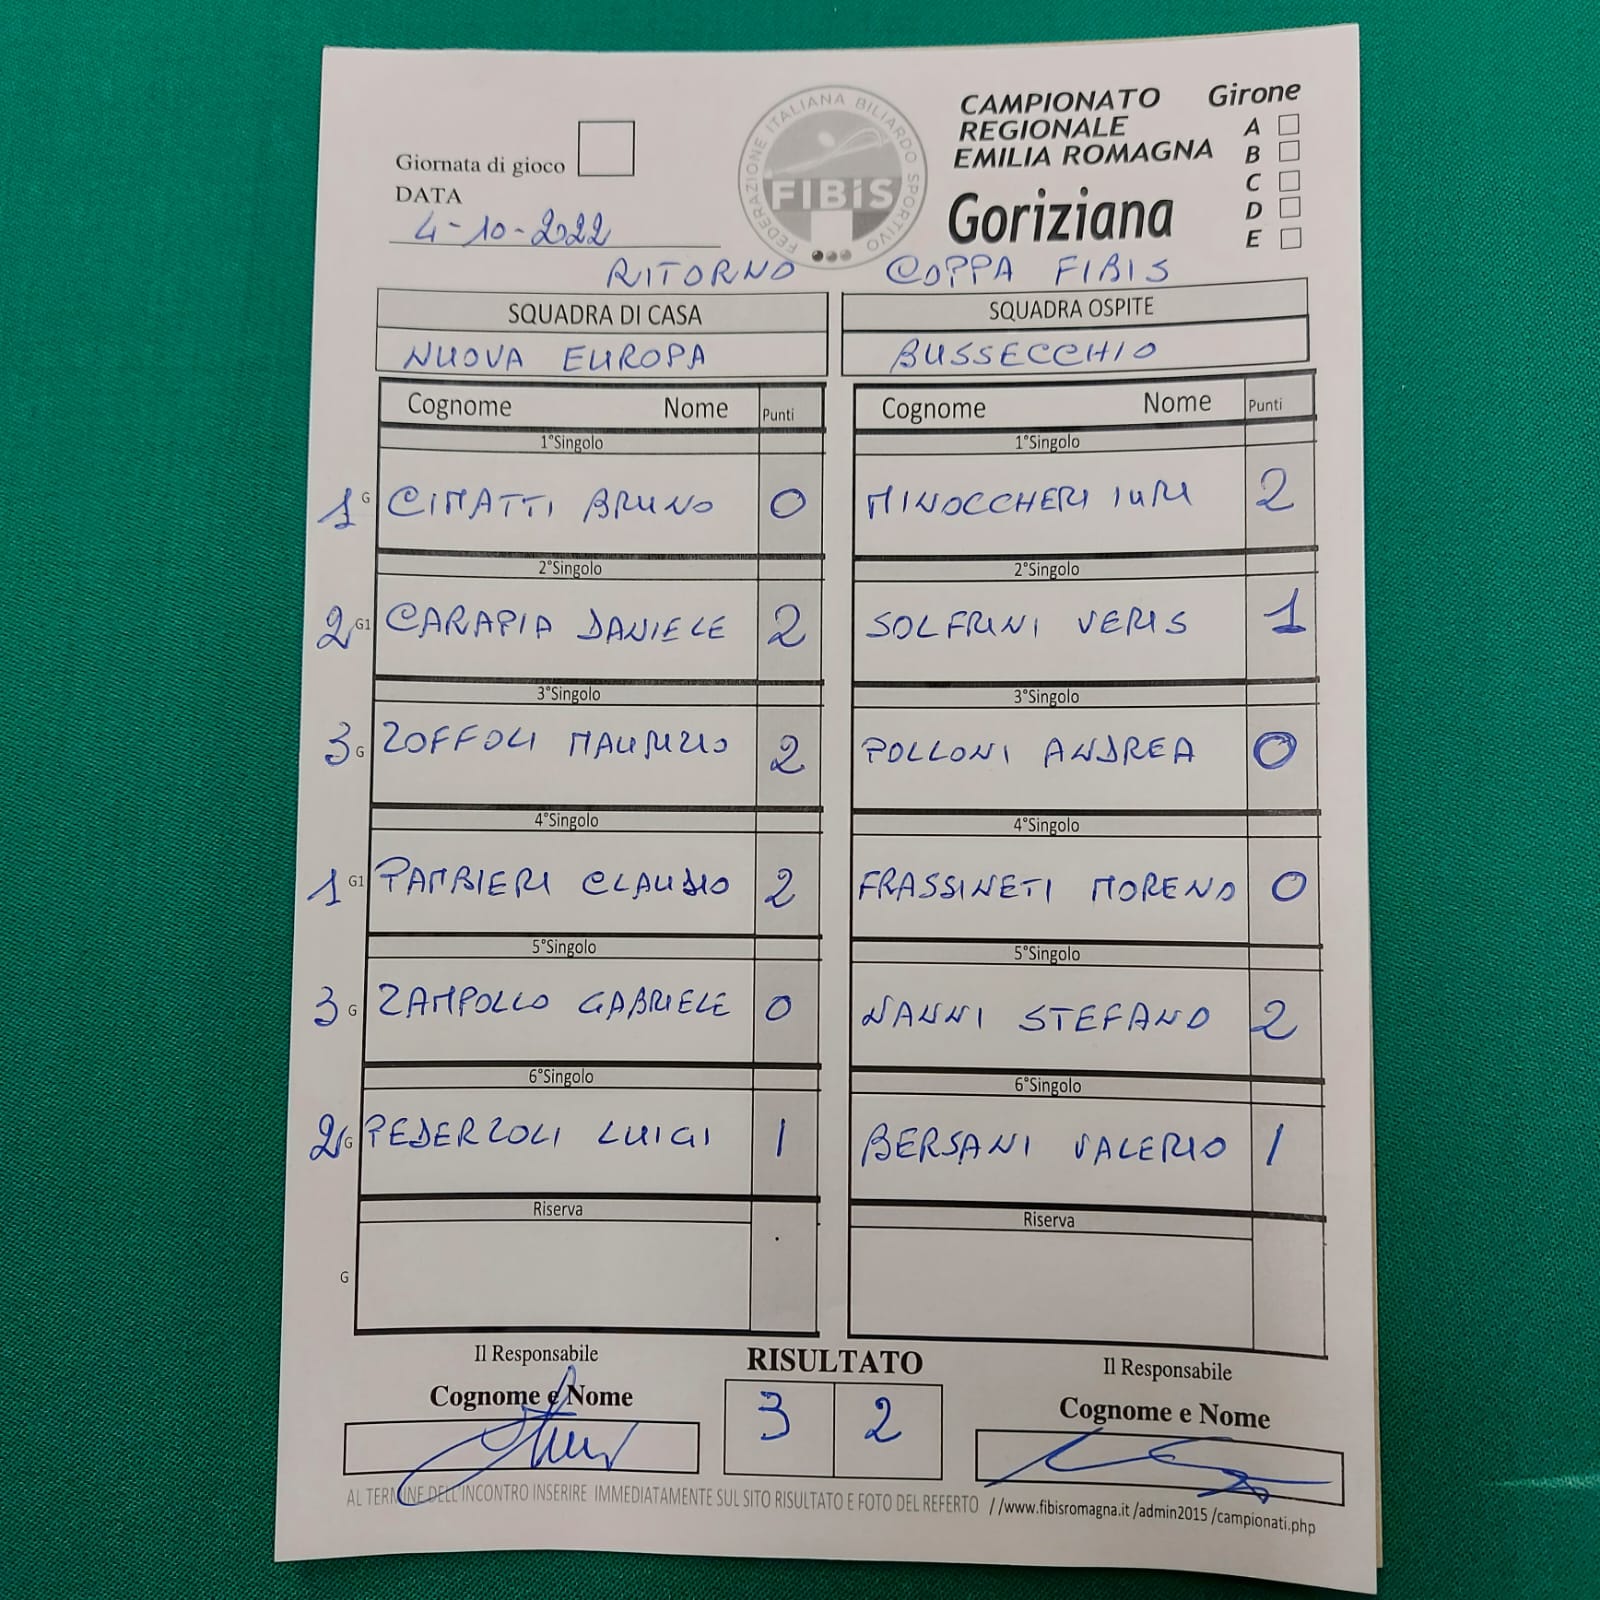 Giornata di gioco
DATA
4-10-2022
FEDERAZIONE ITALIANA BILIARDO SPORTIVO
FIBiS
CAMPIONATO
REGIONALE
EMILIA ROMAGNA
Goriziana
Girone
A
B
C
D
E
RITORNO COPPA FIBIS
SQUADRA DI CASA SQUADRA OSPITE
NUOVA EUROPA BUSSECCHIO
Cognome Nome Punti Cognome Nome Punti
1°Singolo 1°Singolo
1 G CIMATTI BRUNO 0 MINOCCHERI IURI 2
2°Singolo 2°Singolo
2 G1 CARAPIA DANIELE 2 SOLFRINI VERIS 1
3°Singolo 3°Singolo
3 G ZOFFOLI MAURIZIO 2 POLLONI ANDREA 0
4°Singolo 4°Singolo
1 G1 PAMBIERI CLAUDIO 2 FRASSINETI MORENO 0
5°Singolo 5°Singolo
3 G ZAMPOLLO GABRIELE 0 NANNI STEFANO 2
6°Singolo 6°Singolo
2 G PEDERZOLI LUIGI 1 BERSANI VALERIO 1
Riserva Riserva
G
Il Responsabile RISULTATO Il Responsabile
Cognome e Nome 3 2 Cognome e Nome
AL TERMINE DELL'INCONTRO INSERIRE IMMEDIATAMENTE SUL SITO RISULTATO E FOTO DEL REFERTO //www.fibisromagna.it /admin2015 /campionati.php